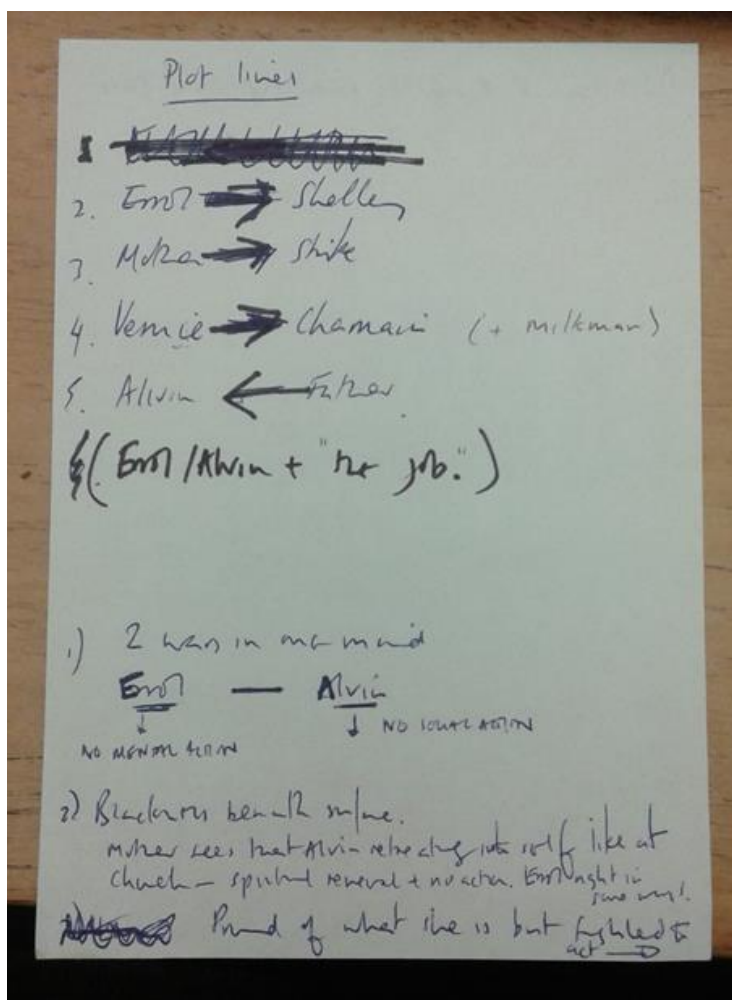 Plot lines
1
2. Errol → Shelley
3. Mother → Strike
4. Vernice → Charmain (+ milkman)
5. Alvin ← Father
(Errol/Alvin + "the job.")
1.) 2 wars in one mind
Errol — Alvin
↓ NO SOCIAL ACTION
↓
NO MENTAL ACTION
2) Blackness beneath surface.
Mother sees that Alvin retreating into self like at
Church – spiritual renewal + no action. Errol right in
some ways.
Proud of what she is but frightened to
act →